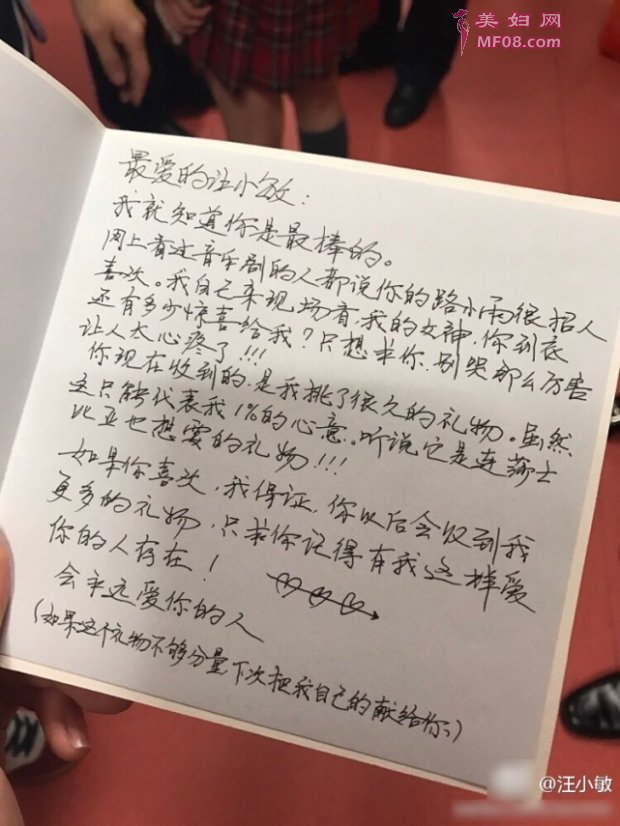 美妇网
MF08.com
最爱的汪小敏：
我就知道你是最棒的。
网上看过音乐剧的人都说你的路小雨很招人
喜欢。我自己来现场看，我的女神，你到底
还有多少惊喜给我？只想求你，别哭那么厉害
让人太心疼了！！！
你现在收到的，是我挑了很久的礼物。虽然
这只能代表我1%的心意。听说它是连莎士
比亚也想要的礼物！！！
如果你喜欢，我保证，你以后会收到我
更多的礼物，只求你记得有我这样爱
你的人存在！
会永远爱你的人
（如果这个礼物不够分量下次把我自己的献给你:）
@汪小敏